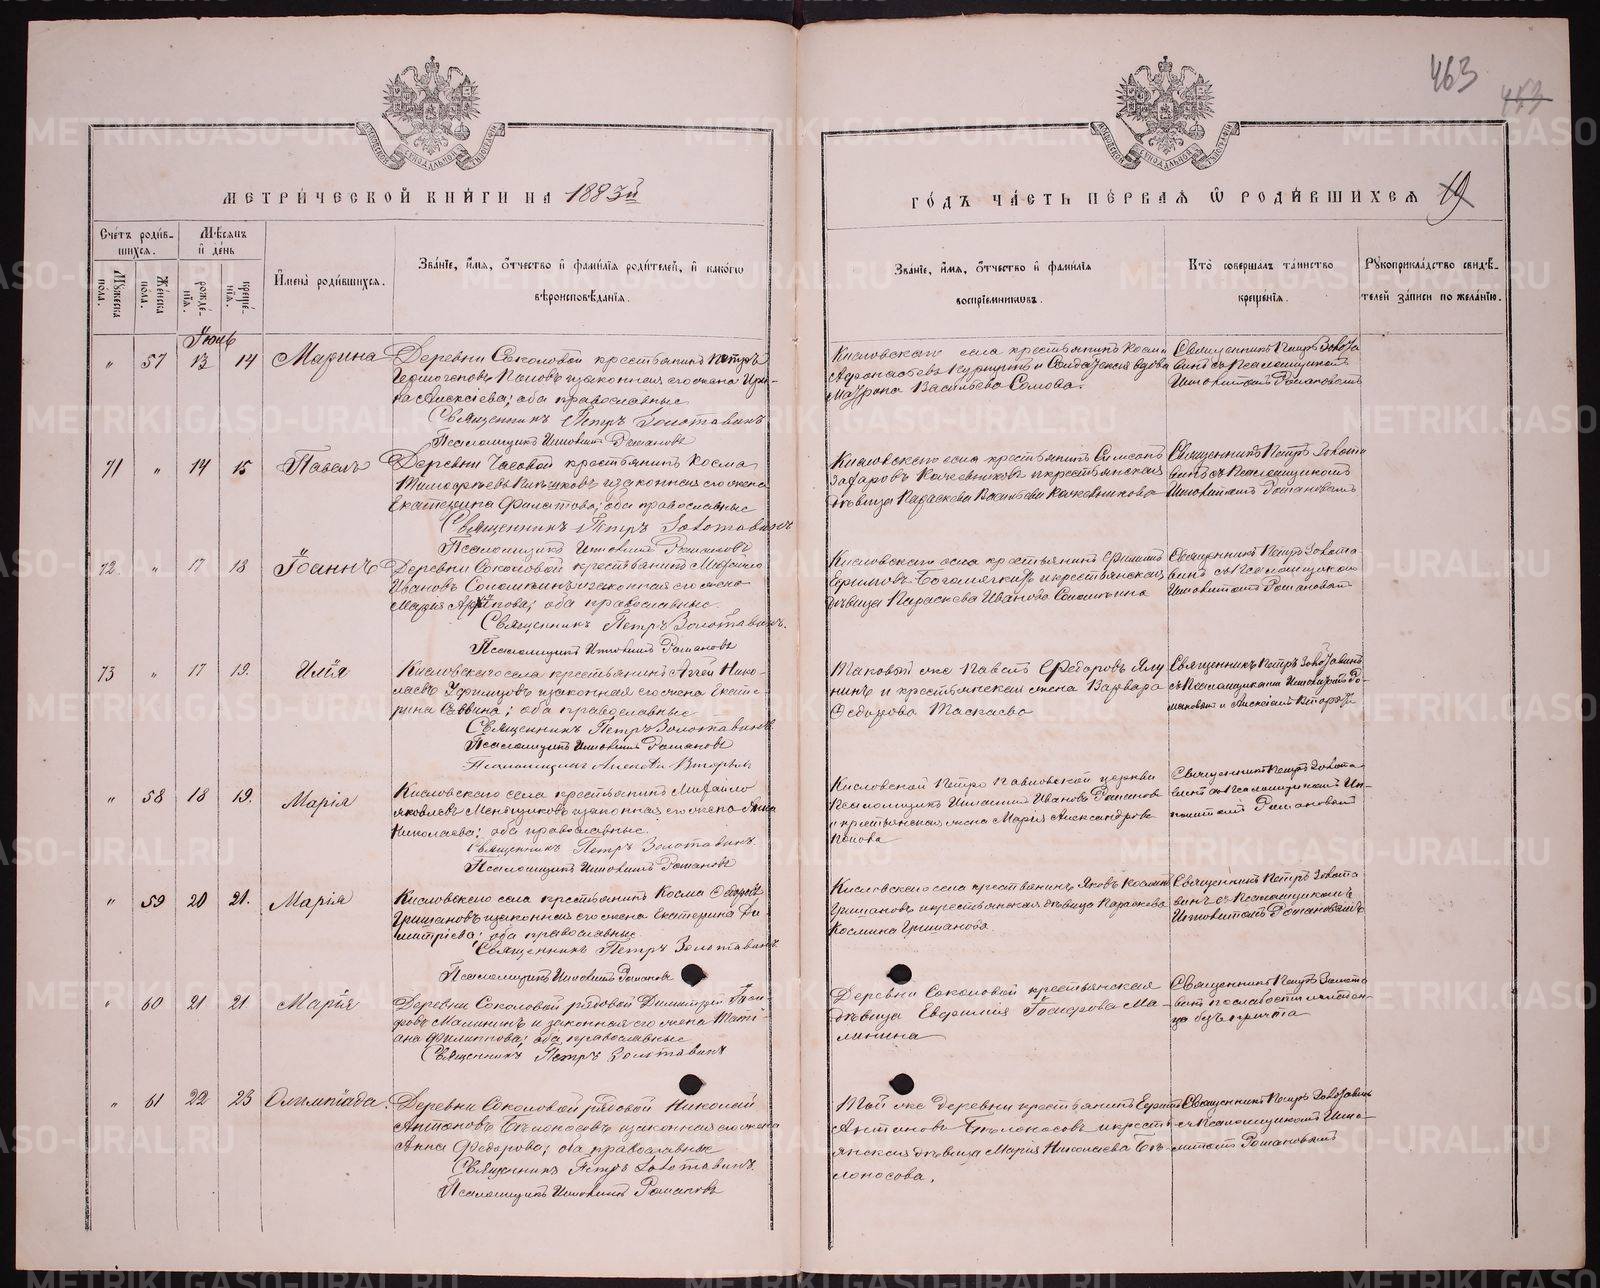 463
453
МЕТРИ́ЧЕСКОЙ КНИ́ГИ НА 1883й
ГО́ДЪ ЧА́СТЬ ПЕ́РВАЯ Ѡ РОДИ́ВШИХСЯ 19
Сче́тъ роди́вшихся.
Му́жеска по́ла.
Же́нска по́ла.
Мѣ́сяцъ и де́нь
рожде́нїя.
креще́нїя.
Имена̀ роди́вшихся.
Зва́нїе, и́мя, о́тчество и фами́лїя роди́телей, и како́гѡ
вѣроисповѣ́данїя.
Зва́нїе, и́мя, о́тчество и фами́лїя
воспрїе́мникѡвъ.
Кто̀ соверша́лъ та́инство
креще́нїя.
Рукоприкла́дство свидѣ́-
телей за́писи по жела́нїю.
Іюль
" 57 13 14 Марина
Деревни Соколовой крестьянинъ Петръ
Гермогеновъ Поповъ и законная его жена Ири-
на Алексіева; оба православные
Священникъ Петръ Золотавинъ
Псаломщикъ Романовъ
Кисловского села крестьянинъ Косма
и Солдатская вдова
Васильева
Священникъ Петръ Золота
винъ съ Псаломщикомъ
Романовымъ
71 " 14 15 Павелъ
Деревни Часовой крестьянинъ Косма
Тимофѣевъ и законная его жена
Екатерина Филатова; оба православные
Священникъ Петръ Золотавинъ
Псаломщикъ Романовъ
Кисловского села крестьянинъ Симеонъ
Захаровъ Кожевниковъ и крестьянская
дѣвица Параскева Васильева Кожевникова
Священникъ Петръ Золота
винъ съ Псаломщикомъ
Романовымъ
72 " 17 18 Іоаннъ
Деревни Соколовой крестьянинъ Михаило
Ивановъ и законная его жена
Марія; оба православные.
Священникъ Петръ Золотавинъ.
Псаломщикъ Романовъ
Кисловского села крестьянинъ
и крестьянская
дѣвица Параскева Иванова
Священникъ Петръ Золота
винъ съ Псаломщикомъ
Романовымъ
73 " 17 19. Илія
Кисловского села крестьянинъ Нико-
лаевъ и законная его жена Екате-
рина Саввина; оба православные
Священникъ Петръ Золотавинъ
Псаломщикъ Романовъ
Псаломщикъ Алексѣй
Таковой же Павелъ Ѳедоровъ Ялу
нинъ и крестьянская жена Варвара
Ѳедорова Таскаева
Священникъ Петръ Золотавинъ
съ Псаломщиками Ро-
мановымъ и Алексіемъ
" 58 18 19. Марія
Кисловского села крестьянинъ Михаило
Яковлевъ Меньщиковъ и законная его жена Анна
Николаева; оба православные.
Священникъ Петръ Золотавинъ.
Псаломщикъ Романовъ
Кисловской Петро Павловской церкви
Псаломщикъ Ивановъ Романовъ
и крестьянская жена Марія Александрова
Попова
Священникъ Петръ Золота
винъ съ Псаломщикомъ
Романовымъ
" 59 20 21. Марія
Кисловского села крестьянинъ Косма Ѳедоровъ
Гришановъ и законная его жена Екатерина Ди
митріева; оба православные
Священникъ Петръ Золотавинъ
Псаломщикъ Романовъ
Кисловского села крестьянинъ Яковъ Космин
Гришановъ и крестьянская дѣвица Параскева
Космина Гришанова.
Священникъ Петръ Золота
винъ съ Псаломщикомъ
Романовымъ
" 60 21 21 Марія
Деревни Соколовой рядовой Димитрій
Малининъ и законная его жена Тати-
ана Филиппова; оба православные
Священникъ Петръ Золотавинъ
Деревни Соколовой крестьянская
дѣвица Евгенія Ма-
линина
Священникъ Петръ Золота
винъ по слабости младен-
ца безъ причта
" 61 22 23 Олимпіада.
Деревни Соколовой рядовой Николай
Антоновъ Бѣлоносовъ и законная его жена
Анна Ѳедорова; оба православные
Священникъ Петръ Золотавинъ.
Псаломщикъ Романовъ
Той же деревни крестьянинъ
Антоновъ Бѣлоносовъ и крестъ-
янская дѣвица Марія Николаева Бѣ-
лоносова.
Священникъ Петръ Золотавинъ
съ Псаломщикомъ
Романовымъ
METRIKI.GASO-URAL.RU